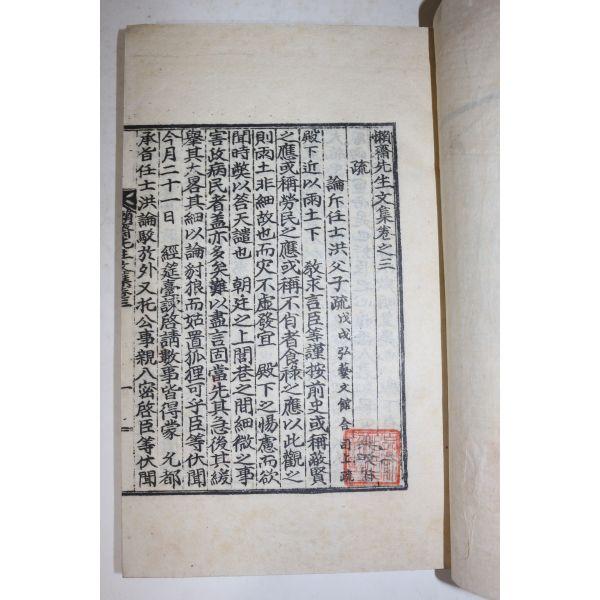 懶齋先生文集卷之三
疏
論斥任士洪父子疏 戊戌弘藝文館合司上疏
殿下近以雨土下 敎求言臣等謹按前史或稱蔽賢
之應或稱勞民之應或稱不肖者食祿之應以此觀之
則雨土非細故也而灾不虛發宜 殿下之惕慮而欲
聞時獘以荅天譴也 朝廷之上閭巷之間細微之事
害政病民者盖亦多矣難以盡言固當先其急後其緩
舉其大畧其細以論豺狼而姑置狐狸可乎臣等伏聞
今月二十一日 經筵臺諫啓請數事皆得蒙 允都
承旨任士洪論駁於外又托公事親入密啓臣等伏聞